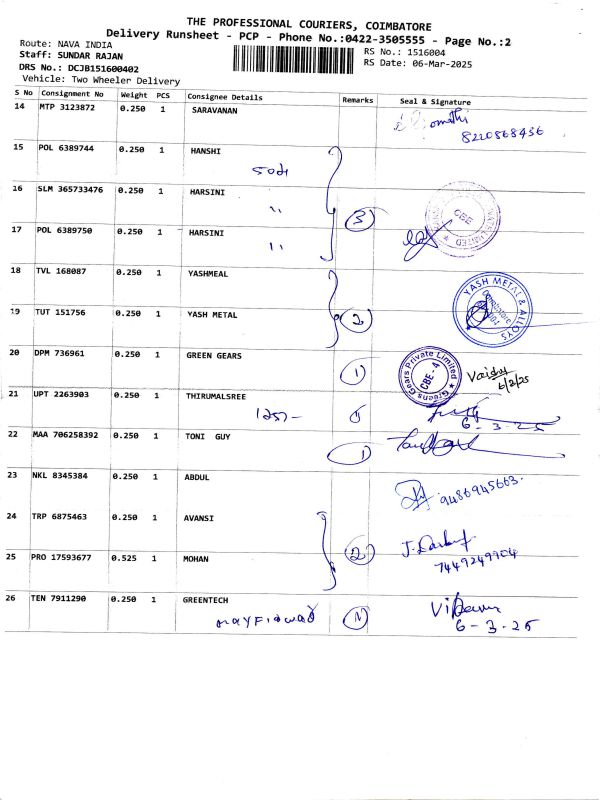 THE PROFESSIONAL COURIERS, COIMBATORE
Delivery Runsheet - PCP - Phone No.:0422-3505555 - Page No.:2
Route: NAVA INDIA
Staff: SUNDAR RAJAN
DRS No.: DCJB151600402
Vehicle: Two Wheeler Delivery
RS No.: 1516004
RS Date: 06-Mar-2025
S No Consignment No Weight PCS Consignee Details Remarks Seal & Signature
14 MTP 3123872 0.250 1 SARAVANAN
omathi
8220868436
15 POL 6389744 0.250 1 HANSHI
16 SLM 365733476 0.250 1 HARSINI
" 3 CBE
17 POL 6389750 0.250 1 HARSINI
"
18 TVL 168087 0.250 1 YASHMEAL
YASH METAL & ALLOYS
19 TUT 151756 0.250 1 YASH METAL
2
20 DPM 736961 0.250 1 GREEN GEARS
1 Greens Gears Private Limited CBE - 4
6/2/25
21 UPT 2263903 0.250 1 THIRUMALSREE
6-3-25
22 MAA 706258392 0.250 1 TONI GUY
1
23 NKL 8345384 0.250 1 ABDUL
9486945663.
24 TRP 6875463 0.250 1 AVANSI
2
7449249904
25 PRO 17593677 0.525 1 MOHAN
26 TEN 7911290 0.250 1 GREENTECH
6-3-25